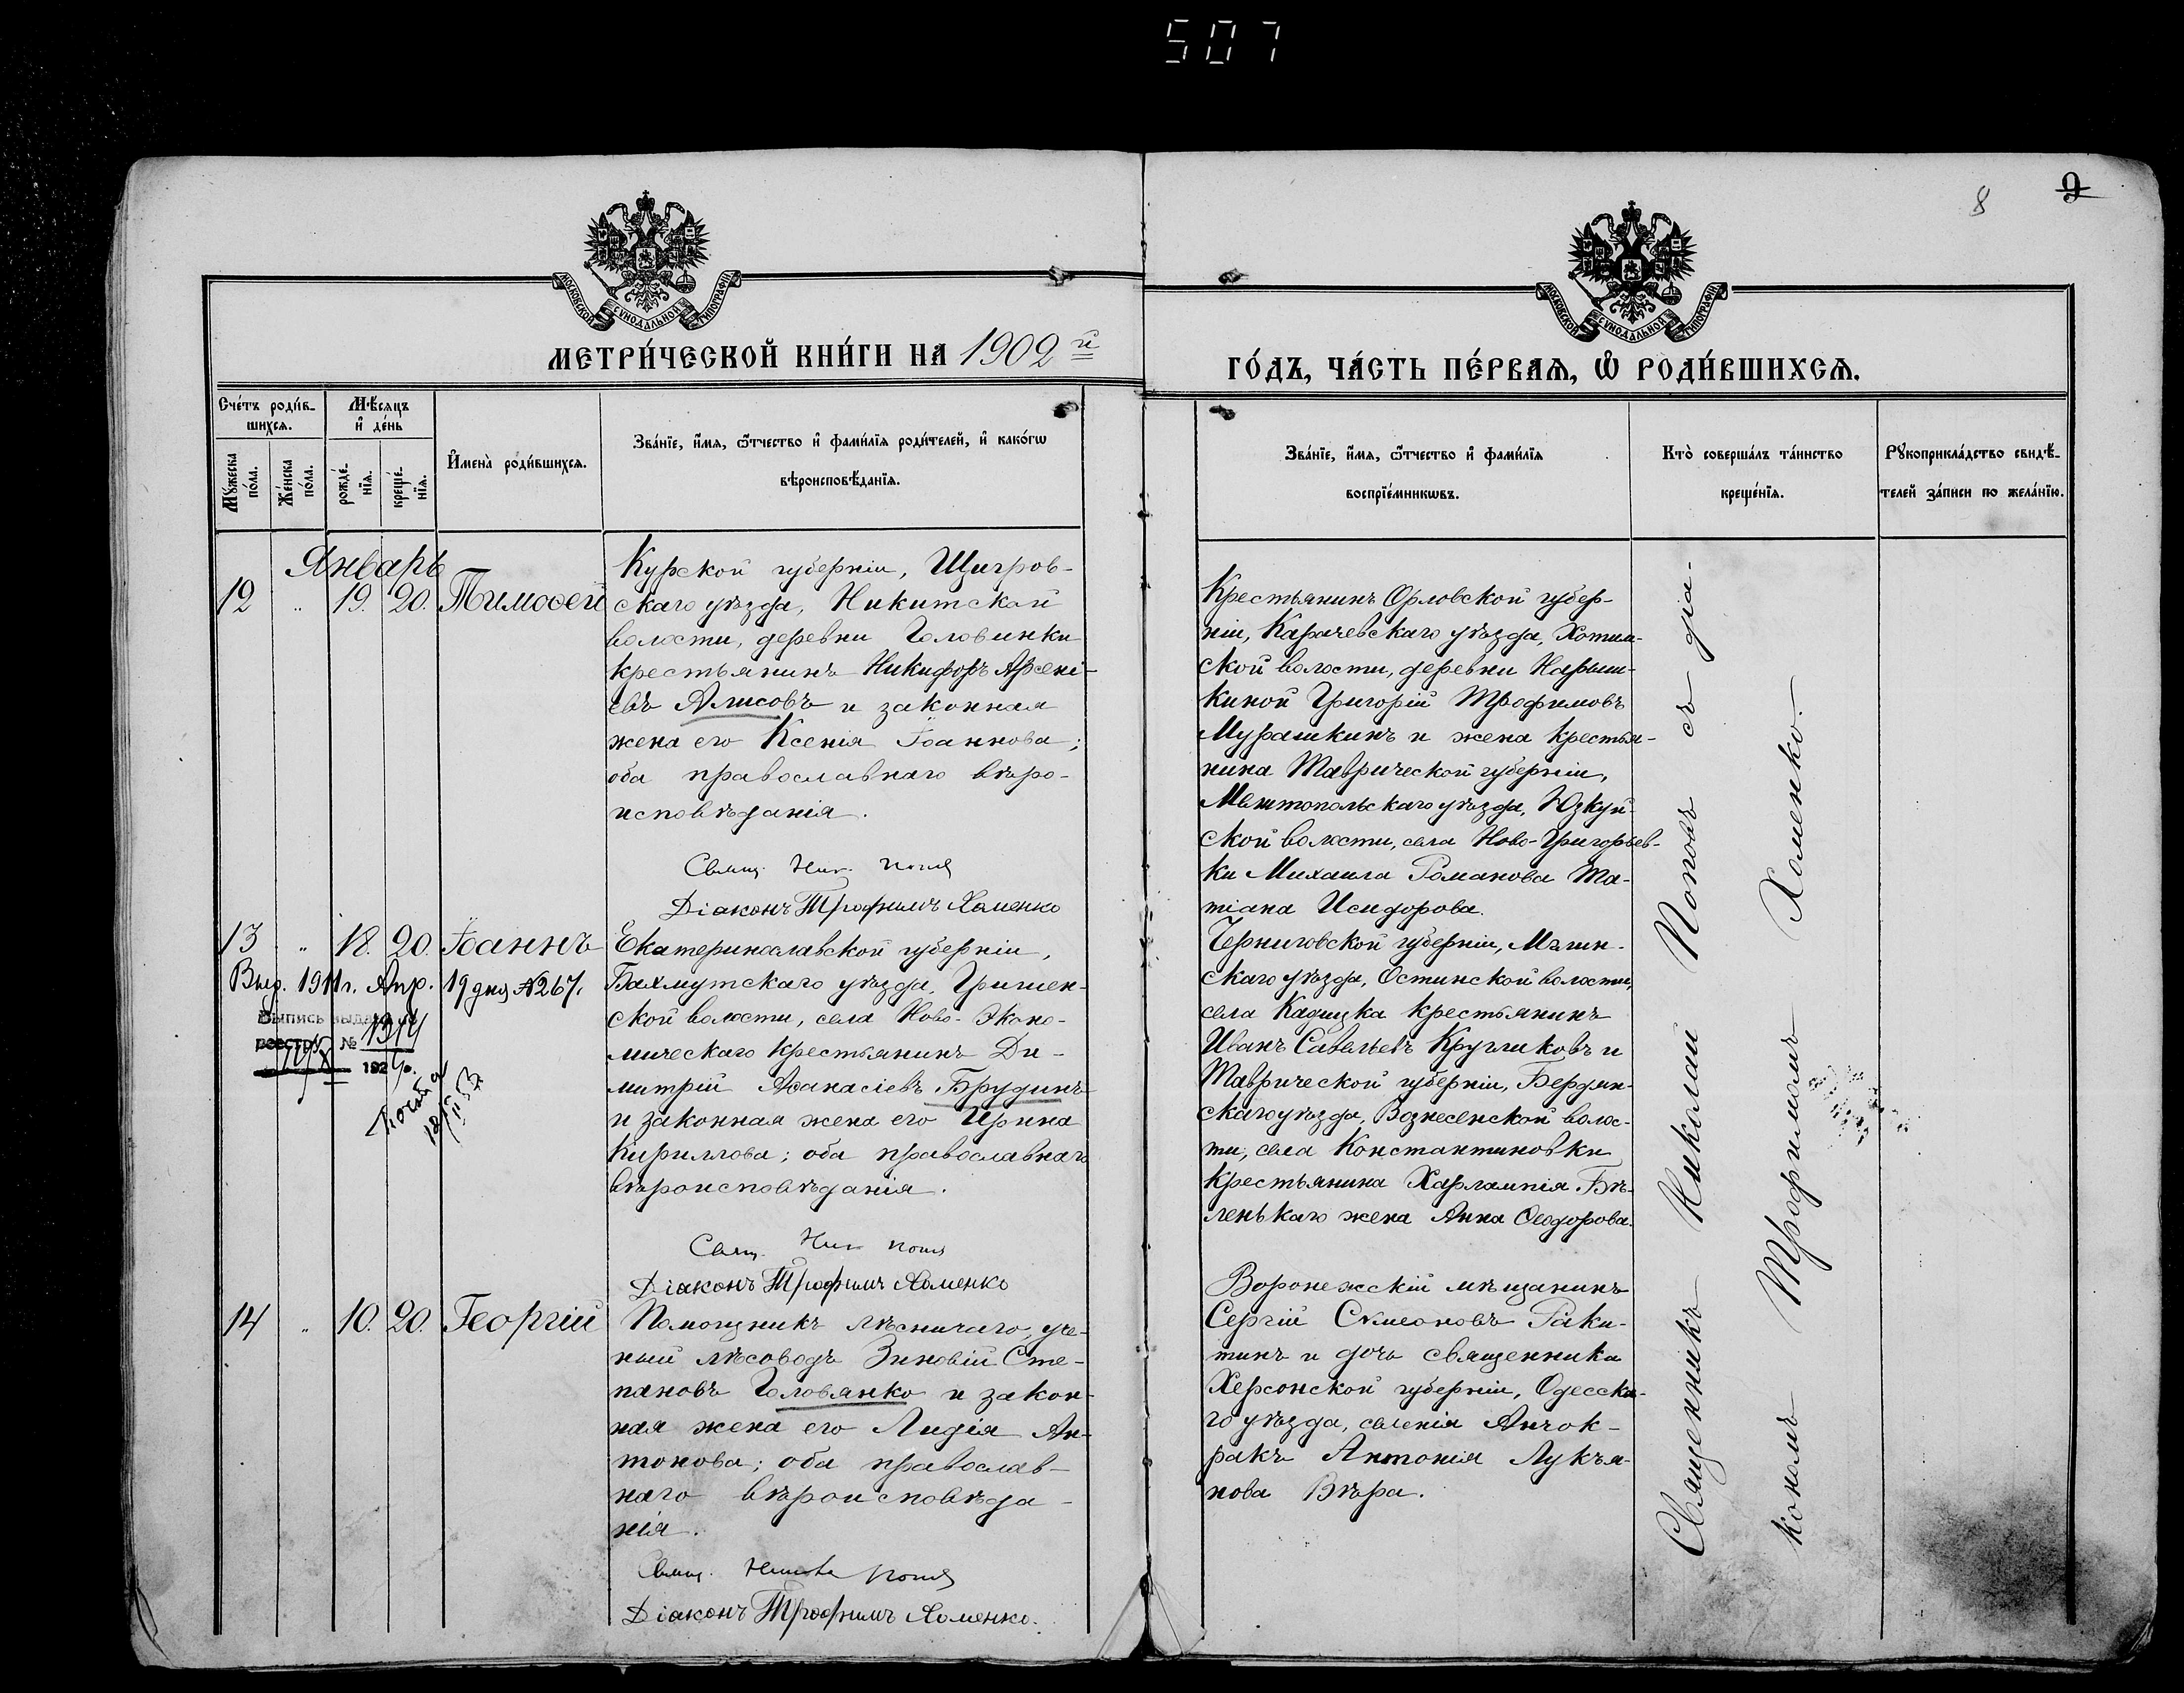 507
8
9
МОСКОВСКОЙ СѴНОДАЛЬНОЙ ТИПОГРАФІИ
МОСКОВСКОЙ СѴНОДАЛЬНОЙ ТИПОГРАФІИ
МЕТРИ́ЧЕСКОЙ КНИ́ГИ НА 1902 й
ГО́ДЪ, ЧА́СТЬ ПЕ́РВАѦ, Ѡ҆ РОДИ́ВШИХСѦ.
Сче́тъ роди́в-
шихсѧ.
Мѹ́жеска по́ла.
Же́нска по́ла.
Мѣ́сѧцъ
и҆ де́нь
рожде́-
нїѧ.
креще́-
нїѧ.
И҆мена̀ роди́вшихсѧ.
Зва́нїе, и҆́мѧ, ѻ҆́тчество и҆ фами́лїѧ роди́телей, и҆ како́гѡ
вѣроисповѣ́данїѧ.
Зва́нїе, и҆́мѧ, ѻ҆́тчество и҆ фами́лїѧ
воспрїе́мникѡвъ.
Кто̀ соверша́лъ та́инство
креще́нїѧ.
Рꙋкоприкла́дство свидѣ́-
телей за́писи по жела́нїю.
Январь
12 " 19. 20. Тимоѳей
Курской губерніи, Щигров-
скаго уѣзда, Никитской
волости, деревни Головинки
крестьянинъ Никифоръ Арсені-
евъ Алисовъ и законная
жена его Ксенія Іоаннова;
оба православнаго вѣро-
исповѣданія.
Свящ. Ник. Попов
Діаконъ Трофимъ Хоменко
Крестьянинъ Орловской губер-
ніи, Карачевскаго уѣзда, Хотим-
ской волости, деревни Нарыш-
киной Григорій Трофимовъ
Мурашкинъ и жена крестья-
нина Таврической губерніи,
Мелитопольскаго уѣзда, Юзкуй-
ской волости, села Ново-Григорьев-
ки Михаила Романова Та-
тіана Исидорова.
13 " 18. 20. Іоаннъ
Выд. 1911 г. Апр. 19 дня №267.
Выпись выдана
реестру № 1344
192
Екатеринославской губерніи,
Бахмутскаго уѣзда, Гришен-
ской волости, села Ново-Эконо-
мическаго крестьянинъ Ди-
митрій Аѳанасіевъ Брудинъ
и законная жена его Ирина
Кириллова; оба православнаго
вѣроисповѣданія.
Свящ. Ник Попов
Діаконъ Трофимъ Хоменко
Черниговской губерніи, Мглин-
скаго уѣзда, волости,
села крестьянинъ
Иванъ Савельевъ Кругликовъ и
Таврической губерніи, Бердян-
скаго уѣзда, Вознесенской волос-
ти, села Константиновки
крестьянина Харлампія Бѣ-
ленькаго жена Анна Ѳеодорова.
14 " 10. 20. Георгій
Помощникъ лѣсничаго, уче-
ный лѣсоводъ Зиновій Сте-
пановъ Головянко и закон-
ная жена его Лидія Ан-
тонова; оба православ-
наго вѣроисповѣда-
нія.
Свящ. Попов
Діаконъ Трофимъ Хоменко.
Воронежскій мѣщанинъ
Сергій Симеоновъ Раки-
тинъ и дочь священника
Херсонской губерніи, Одесска-
го уѣзда, селенія Анчок-
ракъ Антонія Лукъя-
нова Вѣра.
Священникъ Николай Поповъ съ діа-
кономъ Трофимомъ Хоменко.